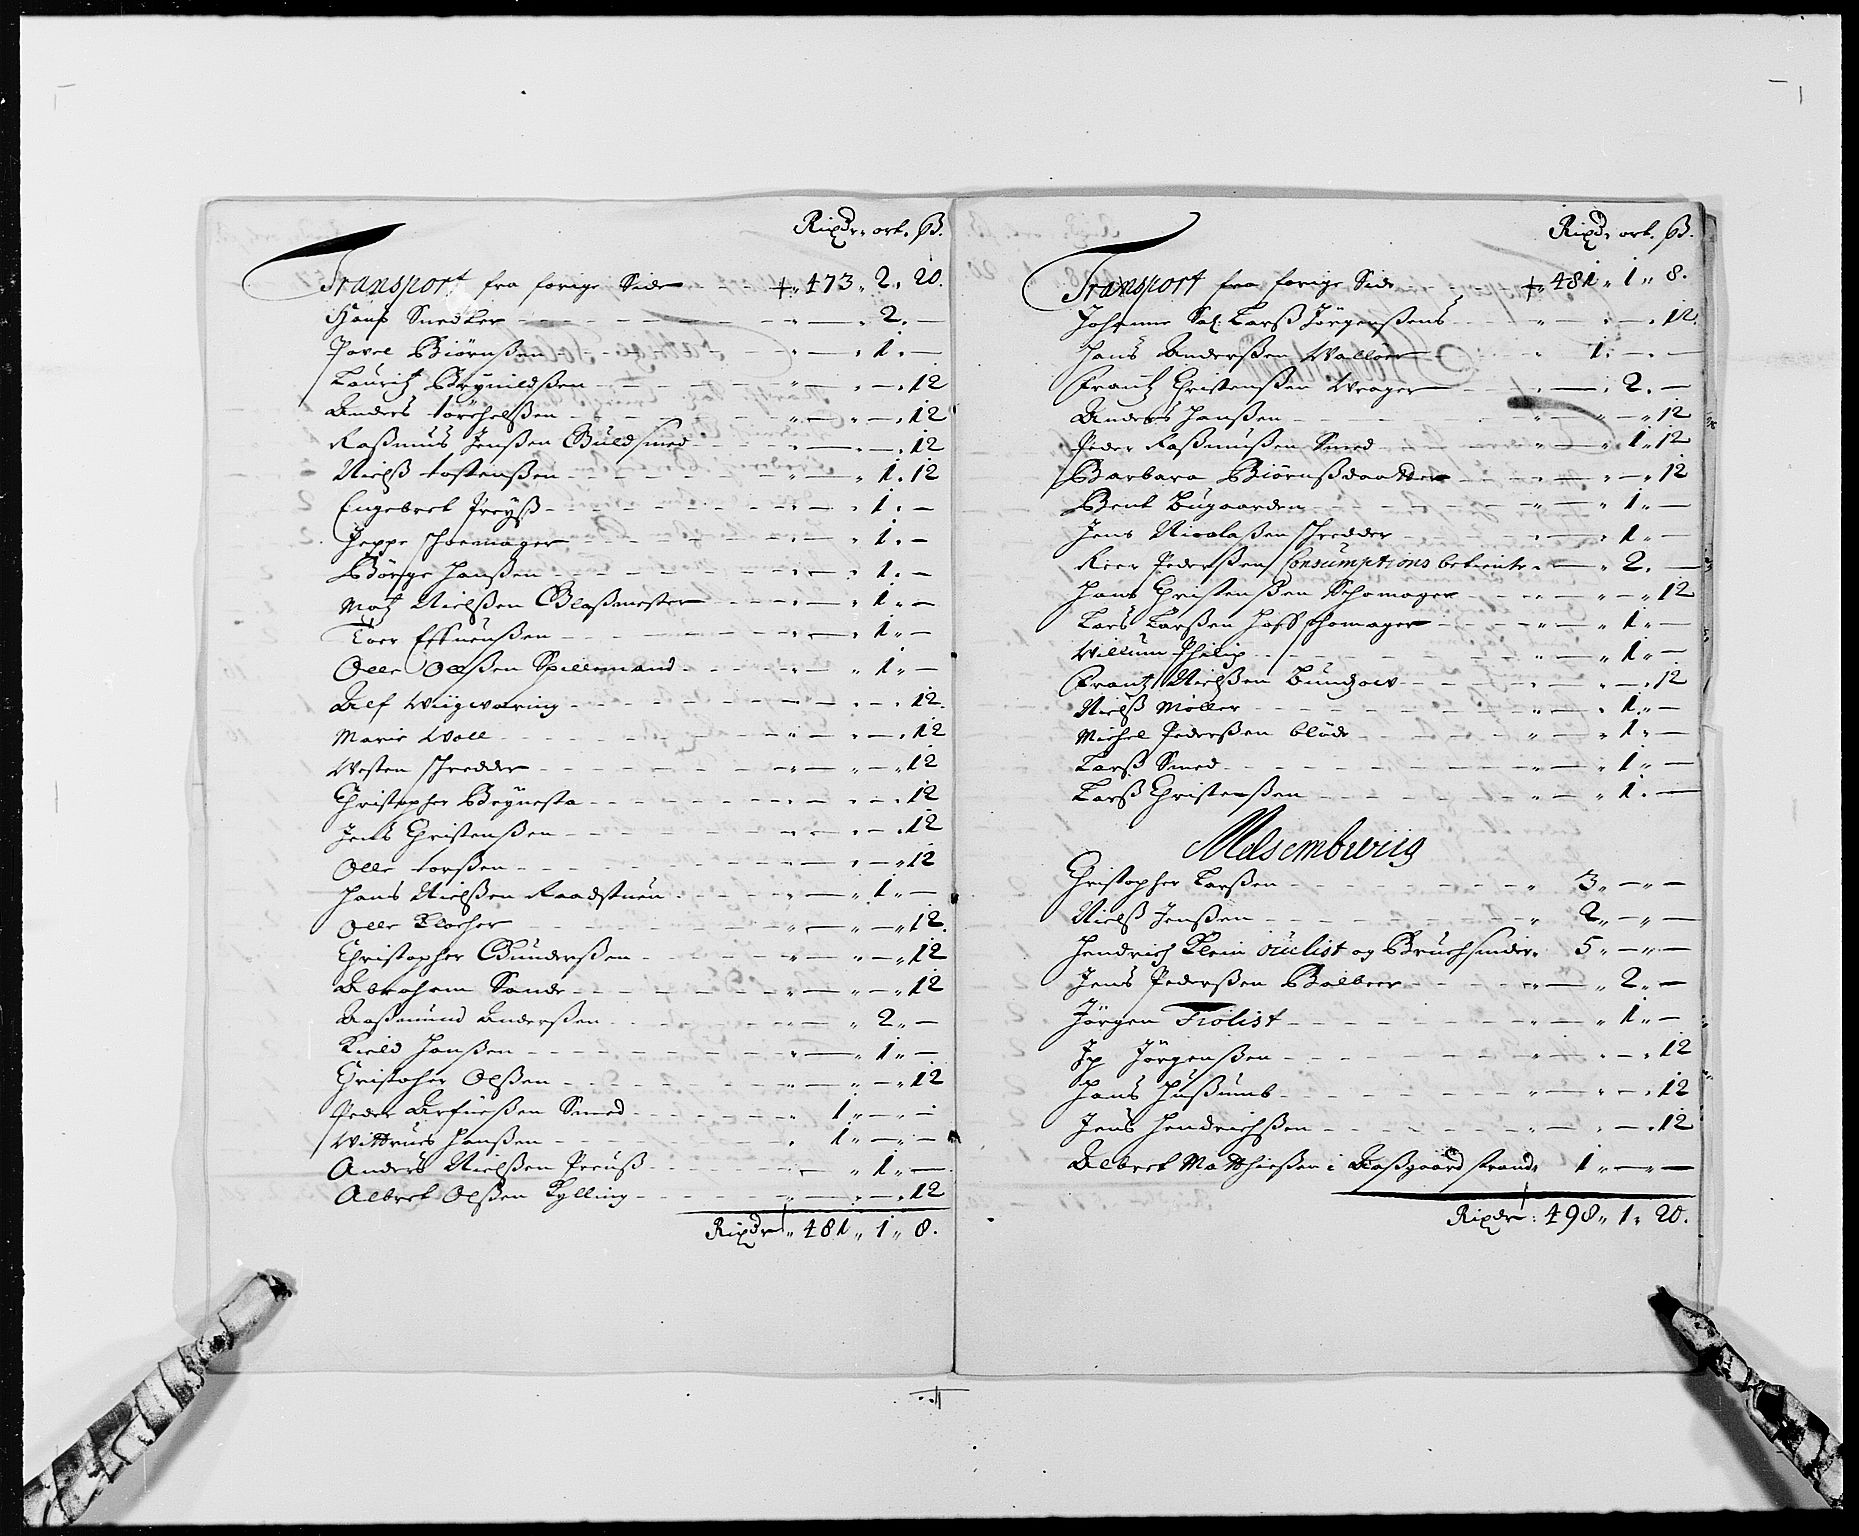 Rixdr. ort. ß.
Transport fra forige Side - - - 473 " 2 " 20.
Hans Snedker - - - " — " 2. —
Povel Biørnßen - - - " — " 1. —
Lauritz Brynildßen - - - " — " — " 12
Anders torchelßen - - - " — " — " 12
Raßmus Jenßen Guldsmed - - - " — " — " 12
Nielß tostenßen - - - " — " 1. 12
Engebret Preyß - - - " — " 1. —
Jeppe schoemager - - - " — " 1. —
Børge Hanßen - - - " — " 1. —
Matz Nielßen Glaßmester - - - " — " 1. —
Toer Effuenßen - - - " — " 1. —
Olle Olßen Spillemand - - - " — " 1. —
Alf Wiigværing - - - " — " — " 12.
Marie Woll - - - " — " — " 12
Westen schredder - - - " — " — " 12
Christopher Brynesta - - - " — " — " 12
Jens Christenßen - - - " — " — " 12
Olle torßen - - - " — " — " 12
Hans Nielßen Raadstuen - - - " — " 1. —
Olle Klocher - - - " — " — " 12.
Christopher Gunderßen - - - " — " — " 12
Abraham Sande - - - " — " — " 12
Aaßmund Anderßen - - - " — " 2. —
Kield Hanßen - - - " — " 1. —
Christopher Olßen - - - " — " — " 12
Peder Arfueßen Smed - - - " 1 " — " —
Hanßen - - - " 1 " — " —
Anders Nielßen Preuß - - - " — " 1. —
Albret Olßen Kylling - - - " — " — " 12
Rixdr " 481 " 1 " 8.
Rixdr ort. ß.
Transport fra forige Side - - - 481 " 1 " 8.
Johanne Sal: Larß Jørgenßens - - - " — " — " 12.
Hans Anderßen Walløer - - - " 1. — " —
Frantz Christenßen Wrager - - - " — " 2. —
Anders Hanßen - - - " — " — " 12
Peder Raßmußen Smed - - - " — " 1 " 12
Barbara Biørnßdaatter - - - " — " — " 12
Bent Bugaarden - - - " — " 1 " —
Jens Nicolaßen schredder - - - " — " 1 " —
Rier Pederßen Consumptions betiente " — " 2. —
Hans Christenßen Schomager - - - " — " — " 12
Lars Larßen Hoff schomager - - - " — " 1 " —
Willum Philip - - - " — " 1 " —
Frantz Nielßen - - - " — " — " 12
Nielß Møller - - - " — " 1 " —
Michel Pederßen bløde - - - " — " 1 " —
Larß Smed - - - " — " 1 " —
Larß Christenßen - - - " — " 1. —
Melsembwiig
Christopher Larßen - - - " 3 " — " —
Nielß Jenßen - - - " 2 " — " —
Hendrich Klein oculist og Bruchsnider " 5 " — " —
Jens Pederßen Balbeer - - - " — " 2 " —
Jørgen Fiolist - - - " — " 1 " —
Jp Jørgenßen - - - " — " — " 12
Hans Hußumb - - - " — " — " 12
Jens Hendrichßen - - - " — " — " 12
Albret Matthießen i Aaßgaard strand " 1 " — " —
Rixdr : 498 " 1 " 20.